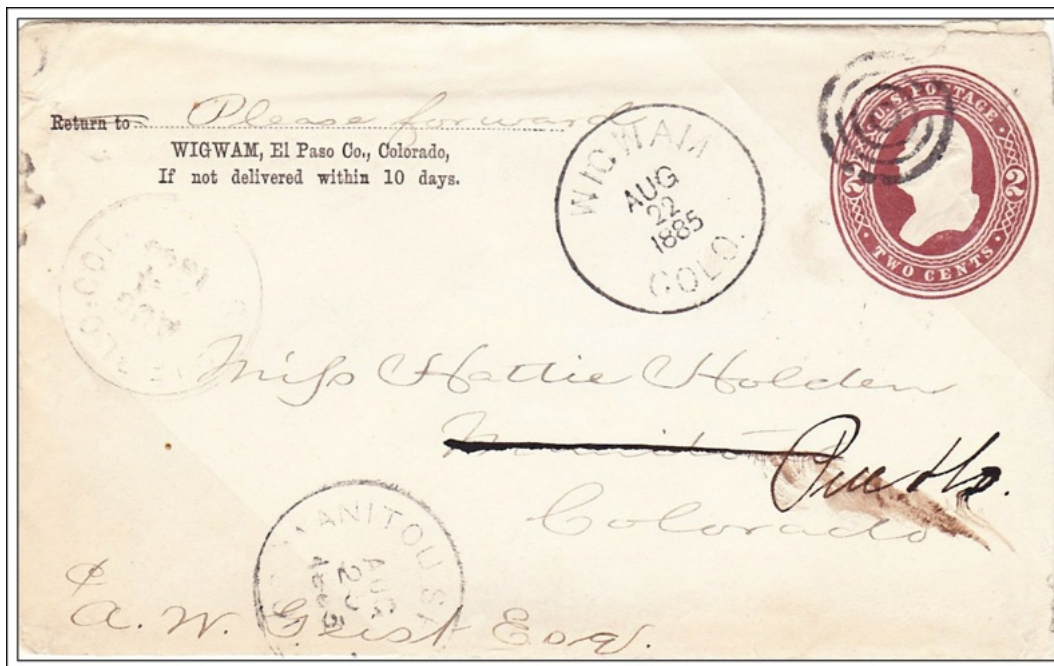 Return to Please forward
WIGWAM, El Paso Co., Colorado,
If not delivered within 10 days.
WIGWAM
AUG
22
1885
COLO.
U.S. POSTAGE
2 2
TWO CENTS
Miss Hattie Holden
Manitou Pueblo.
Colorado
MANITOU
AUG
A. W. Geist Esqr.